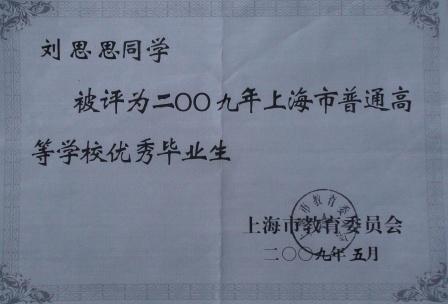 刘思思同学
被评为二〇〇九年上海市普通高
等学校优秀毕业生
上海市教育委员会
二〇〇九年五月